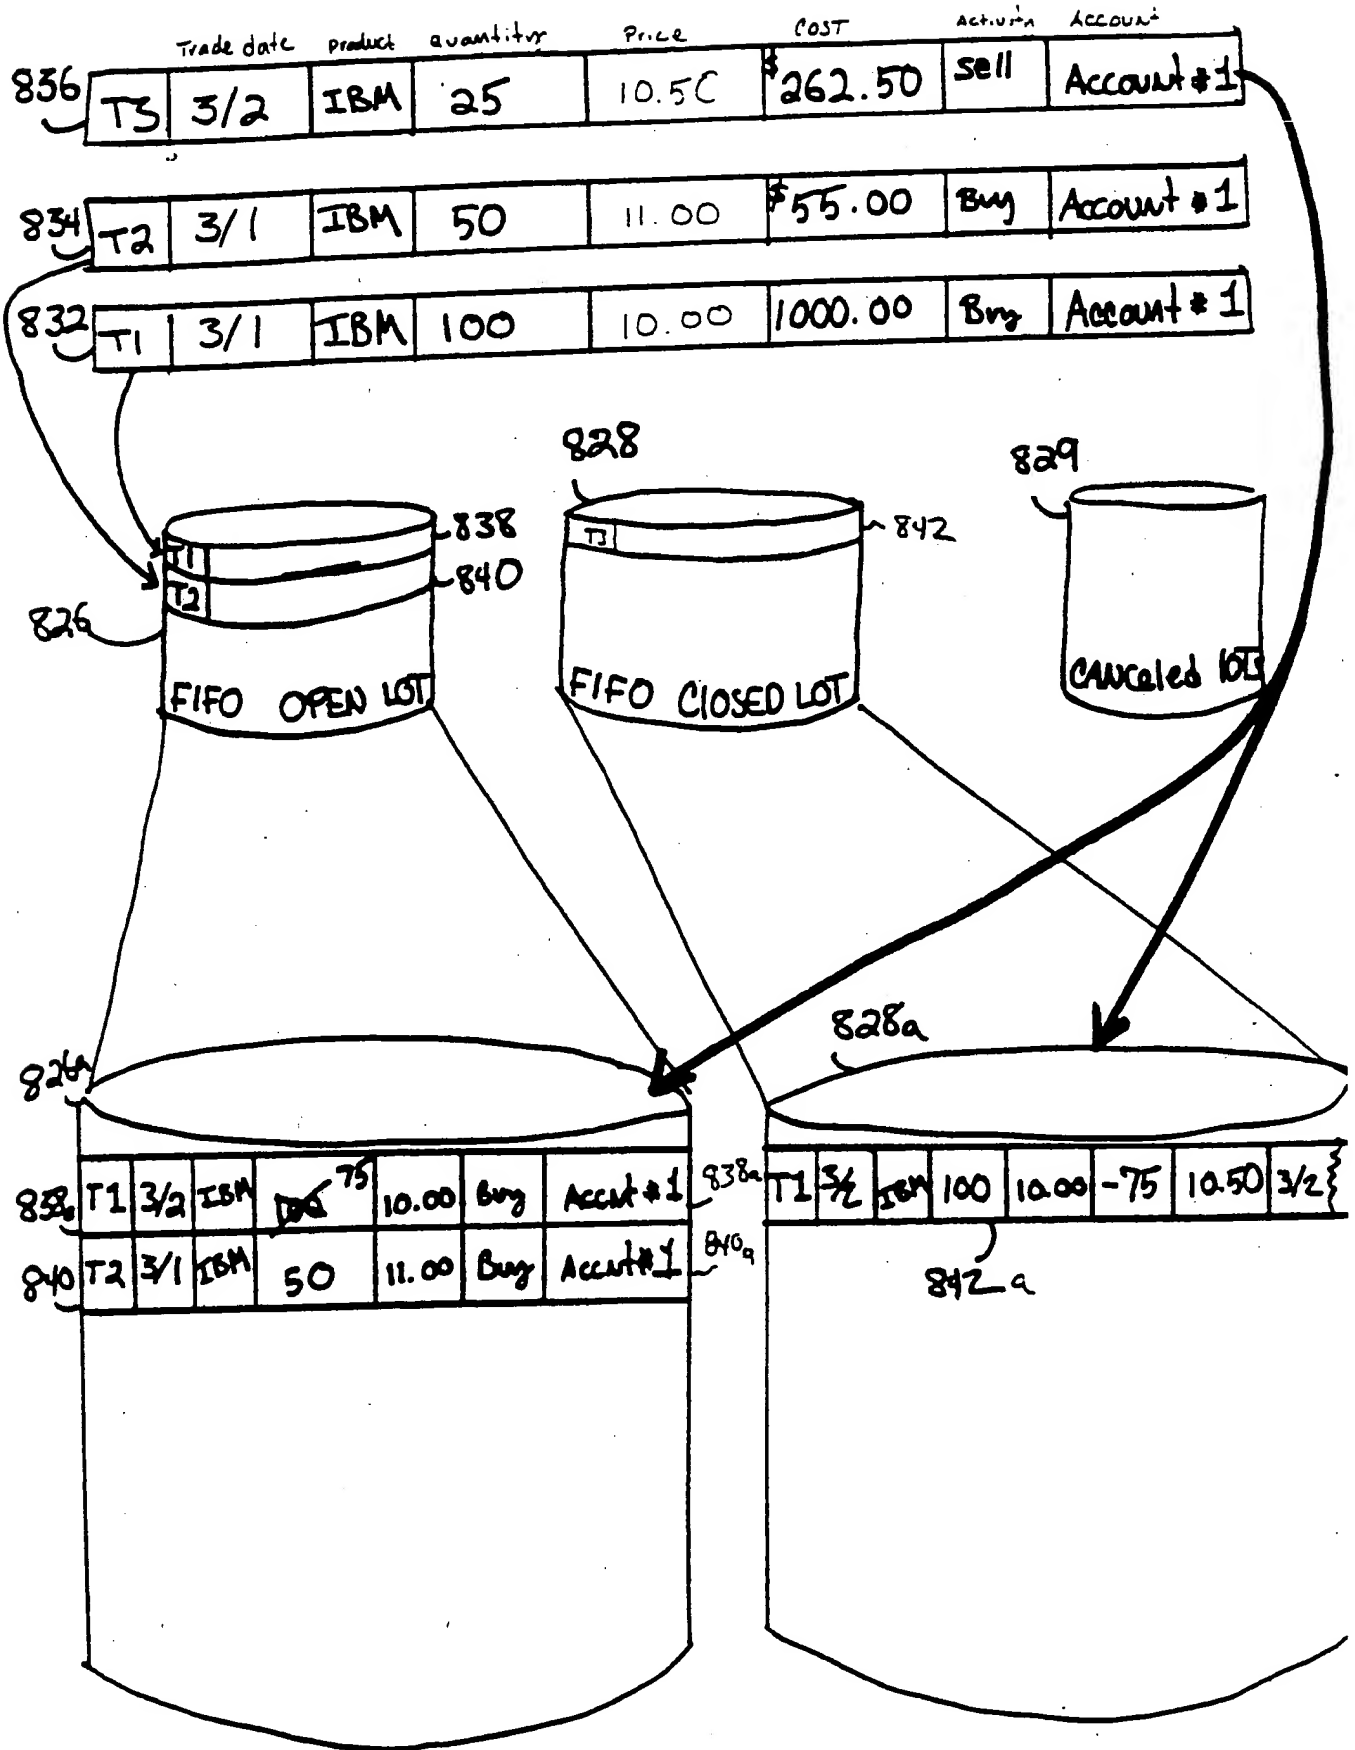 Trade date Product Quantity Price COST Account
836 T3 3/2 IBM 25 10.50 $262.50 Sell Account #1
834 T2 3/1 IBM 50 11.00 $55.00 Buy Account #1
832 T1 3/1 IBM 100 10.00 1000.00 Buy Account #1
828 829
838 T3 842
T1
840
T2
826
FIFO OPEN LOT FIFO CLOSED LOT CANCELED LOTS
828a
826a
838 T1 3/2 IBM 75 10.00 Buy Accnt #1 838a T1 3/2 IBM 100 10.00 -75 10.50 3/2
840 T2 3/1 IBM 50 11.00 Buy Accnt #1 840a
842a